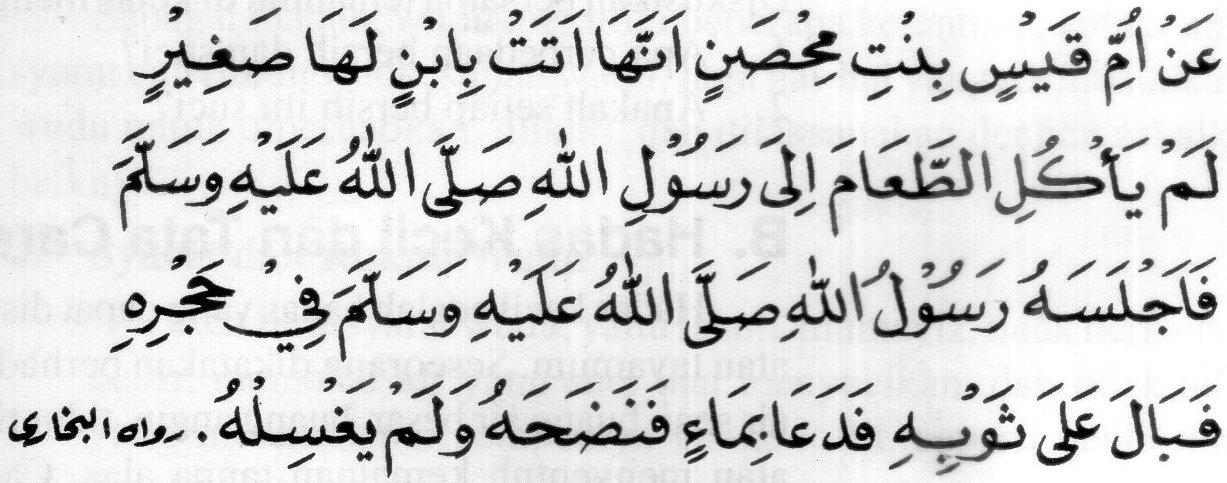 عَنْ اُمِّ قَيْسٍ بِنْتِ مِحْصَنٍ اَنَّهَا اَتَتْ بِابْنٍ لَهَا صَغِيْرٍ
لَمْ يَأْكُلِ الطَّعَامَ اِلَى رَسُوْلِ اللّٰهِ صَلَّى اللّٰهُ عَلَيْهِ وَسَلَّمَ
فَاَجْلَسَهُ رَسُوْلُ اللّٰهِ صَلَّى اللّٰهُ عَلَيْهِ وَسَلَّمَ فِيْ حَجْرِهِ
فَبَالَ عَلَى ثَوْبِهِ فَدَعَا بِمَاءٍ فَنَضَحَهُ وَلَمْ يَغْسِلْهُ. رواه البخارى